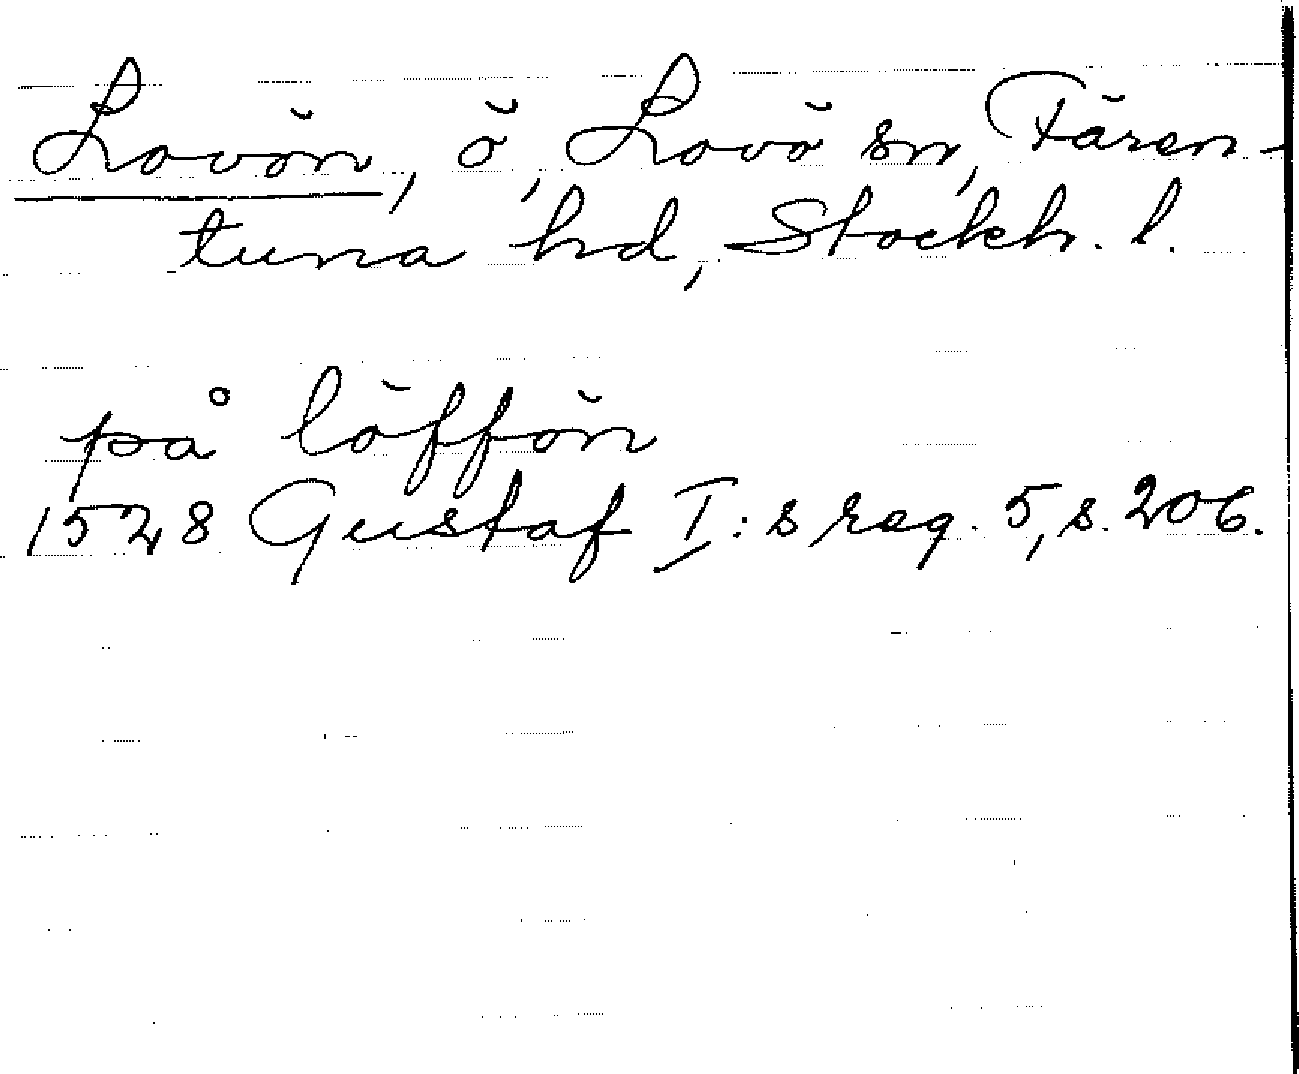 Lovön, ö, Lovö sn, Fären-
tuna hd, Stockh. l.
på löffön
1528 Gustaf I:s reg. 5, s. 206.